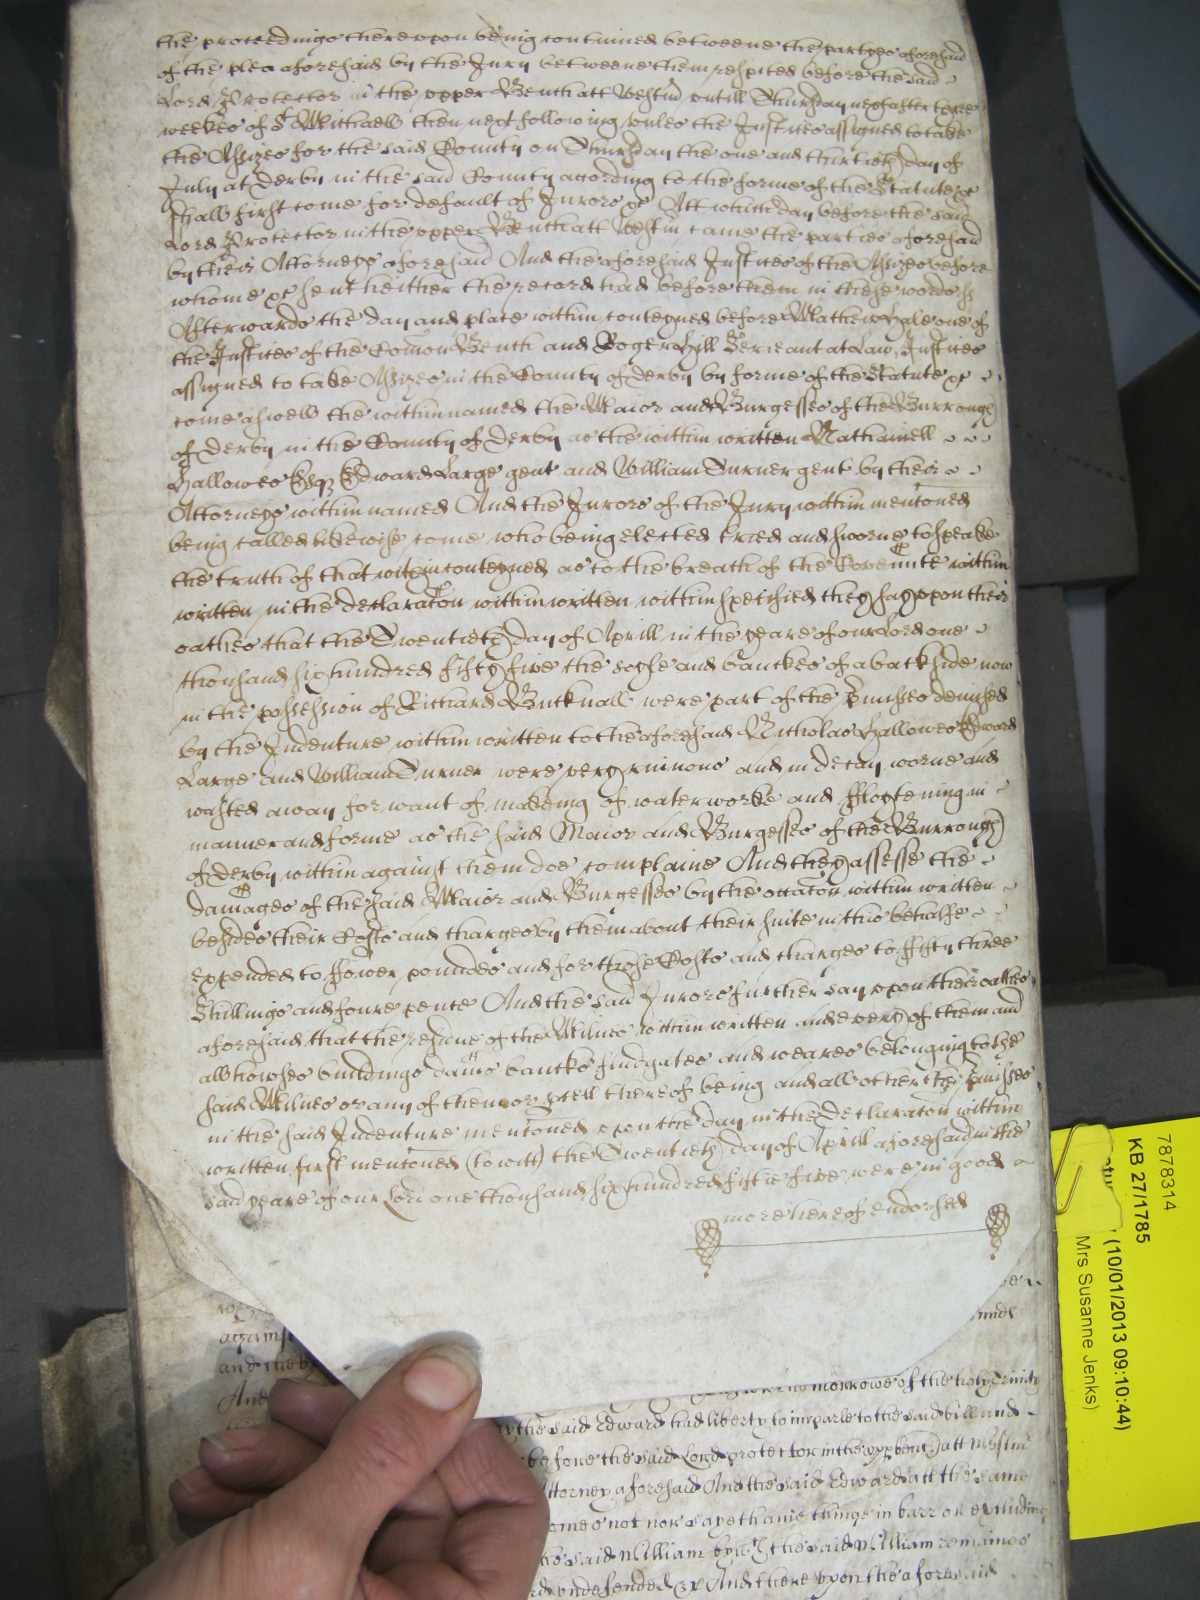 the proceedings thereupon being continued betweene the partyes aforesaid
of the plea aforesaid by the Jury betweene them respited before the said
Lord Protector in the upper Bench att Westm untill Thursday next after three
weekes of St Michaell then next following unles the Justices assigned to take
the Assizes for the said County on Thursday the one and thirtieth day of
July at Derby in the said County according to the forme of the Statute &c
shall first come for default of Jurors &c Att which day before the said
Lord Protector in the upper Bench att Westm came the parties aforesaid
by their Attorneys aforesaid And the aforesaid Justices of the Assizes before
whome &c sent hether the record had before them in these words ss
Afterwards the day and place within conteyned before Mathew Hale one of
the Justices of the Comon Bench and Roger Hill Serieant at Law Justices
assigned to take Assizes in the County of Derby by forme of the Statute &c
come aswell the within named the Maior and Burgesses of the Burrough
of Derby in the County of Derby as the within written Nathaniell
Hallowes Esqr Edward Large gent and William Turner gent by their
Attorneys within named And the Jurors of the Jury within mentoned
being called likewise come who being elected tried and sworne to speake
the truth of that within conteyned as to the breach of the Covennte within
written in the declaraton within written within specified they say upon their
oathes that the Twentieth day of Aprill in the yeare of our Lord one
thousand six hundred fifty five the soyle and banckes of a backside now
in the possession of Richard Bucknall were part of the pmisses demised
by the Indenture within written to the aforesaid Nicholas Hallowes Edward
Large and William Turner were very ruinous and in decay worne and
wasted away for want of makeing of waterworke and in
manner and forme as the said Maior and Burgesses of the Burrough
of Derby within against them doe complaine And they assesse the
damages of the said Maior and Burgesses by the occaton within written
besides their Costs and charges by them about their suite in this behalfe
expended to ffower poundes and for those Costs and charges to fifty three
Shillings and foure pence And the said Jurors further say upon their oathes
aforesaid that the residue of the Milnes within written and every of them and
all howses buildings dams bancks fludgates and weares belonging to the
said Milnes or any of them or pcell thereof being and all other the pmisses
in the said Indenture mentoned upon the day in the Declaraton within
written first mentoned (to witt) the Twentieth day of Aprill aforesaid in the
said yeare of our Lord one thousand six hundred fiftie five were in good
more hereof endorsed
against
and they
And
morrowe of the holy Trinity
the said Edward had liberty to imparle to the said bill and
before the said Lord protector in the upp bench att Westm
Attorney aforesaid And the said Edward att the same
comes not nor sayeth anie thinge in barr or
the said William by wch the said William remaines
undefended &c And there upon the aforesaid
7878314
KB 27/1785
(10/01/2013 09:10:44)
Mrs Susanne Jenks)